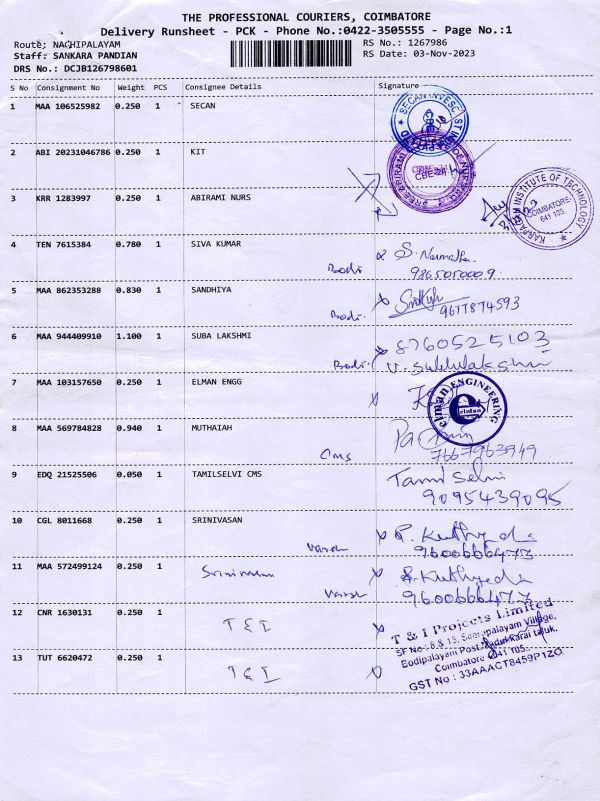 THE PROFESSIONAL COURIERS, COIMBATORE
Delivery Runsheet - PCK - Phone No.:0422-3505555 - Page No.:1
Route: NACHIPALAYAM
Staff: SANKARA PANDIAN
DRS No.: DCJB126798601
RS No.: 1267986
RS Date: 03-Nov-2023
S No Consignment No Weight PCS Consignee Details Signature
1 MAA 106525982 0.250 1 SECAN
2 ABI 20231046786 0.250 1 KIT
CBE-24
3 KRR 1283997 0.250 1 ABIRAMI NURS
KARPAGAM INSTITUTE OF TECHNOLOGY
COIMBATORE-
641 105.
4 TEN 7615384 0.780 1 SIVA KUMAR
Bodi S.
9865050009
5 MAA 862353288 0.830 1 SANDHIYA
Bodi. 9677874593
6 MAA 944409910 1.100 1 SUBA LAKSHMI
8760525103
Bodi V. Subbulakshmi
7 MAA 103157650 0.250 1 ELMAN ENGG
elman ENGINEERING
e
elman
8 MAA 569784828 0.940 1 MUTHAIAH
Cms 7667963949
9 EDQ 21525506 0.050 1 TAMILSELVI CMS
Tamil Selvi
9095439095
10 CGL 8011668 0.250 1 SRINIVASAN
P.
9600666473
11 MAA 572499124 0.250 1 Srinivasan
9600666473
12 CNR 1630131 0.250 1 T & I
T & I Projects Limited
Coimbatore 641 105.
GST No : 33AAACT8459P1ZO
13 TUT 6620472 0.250 1 T & I